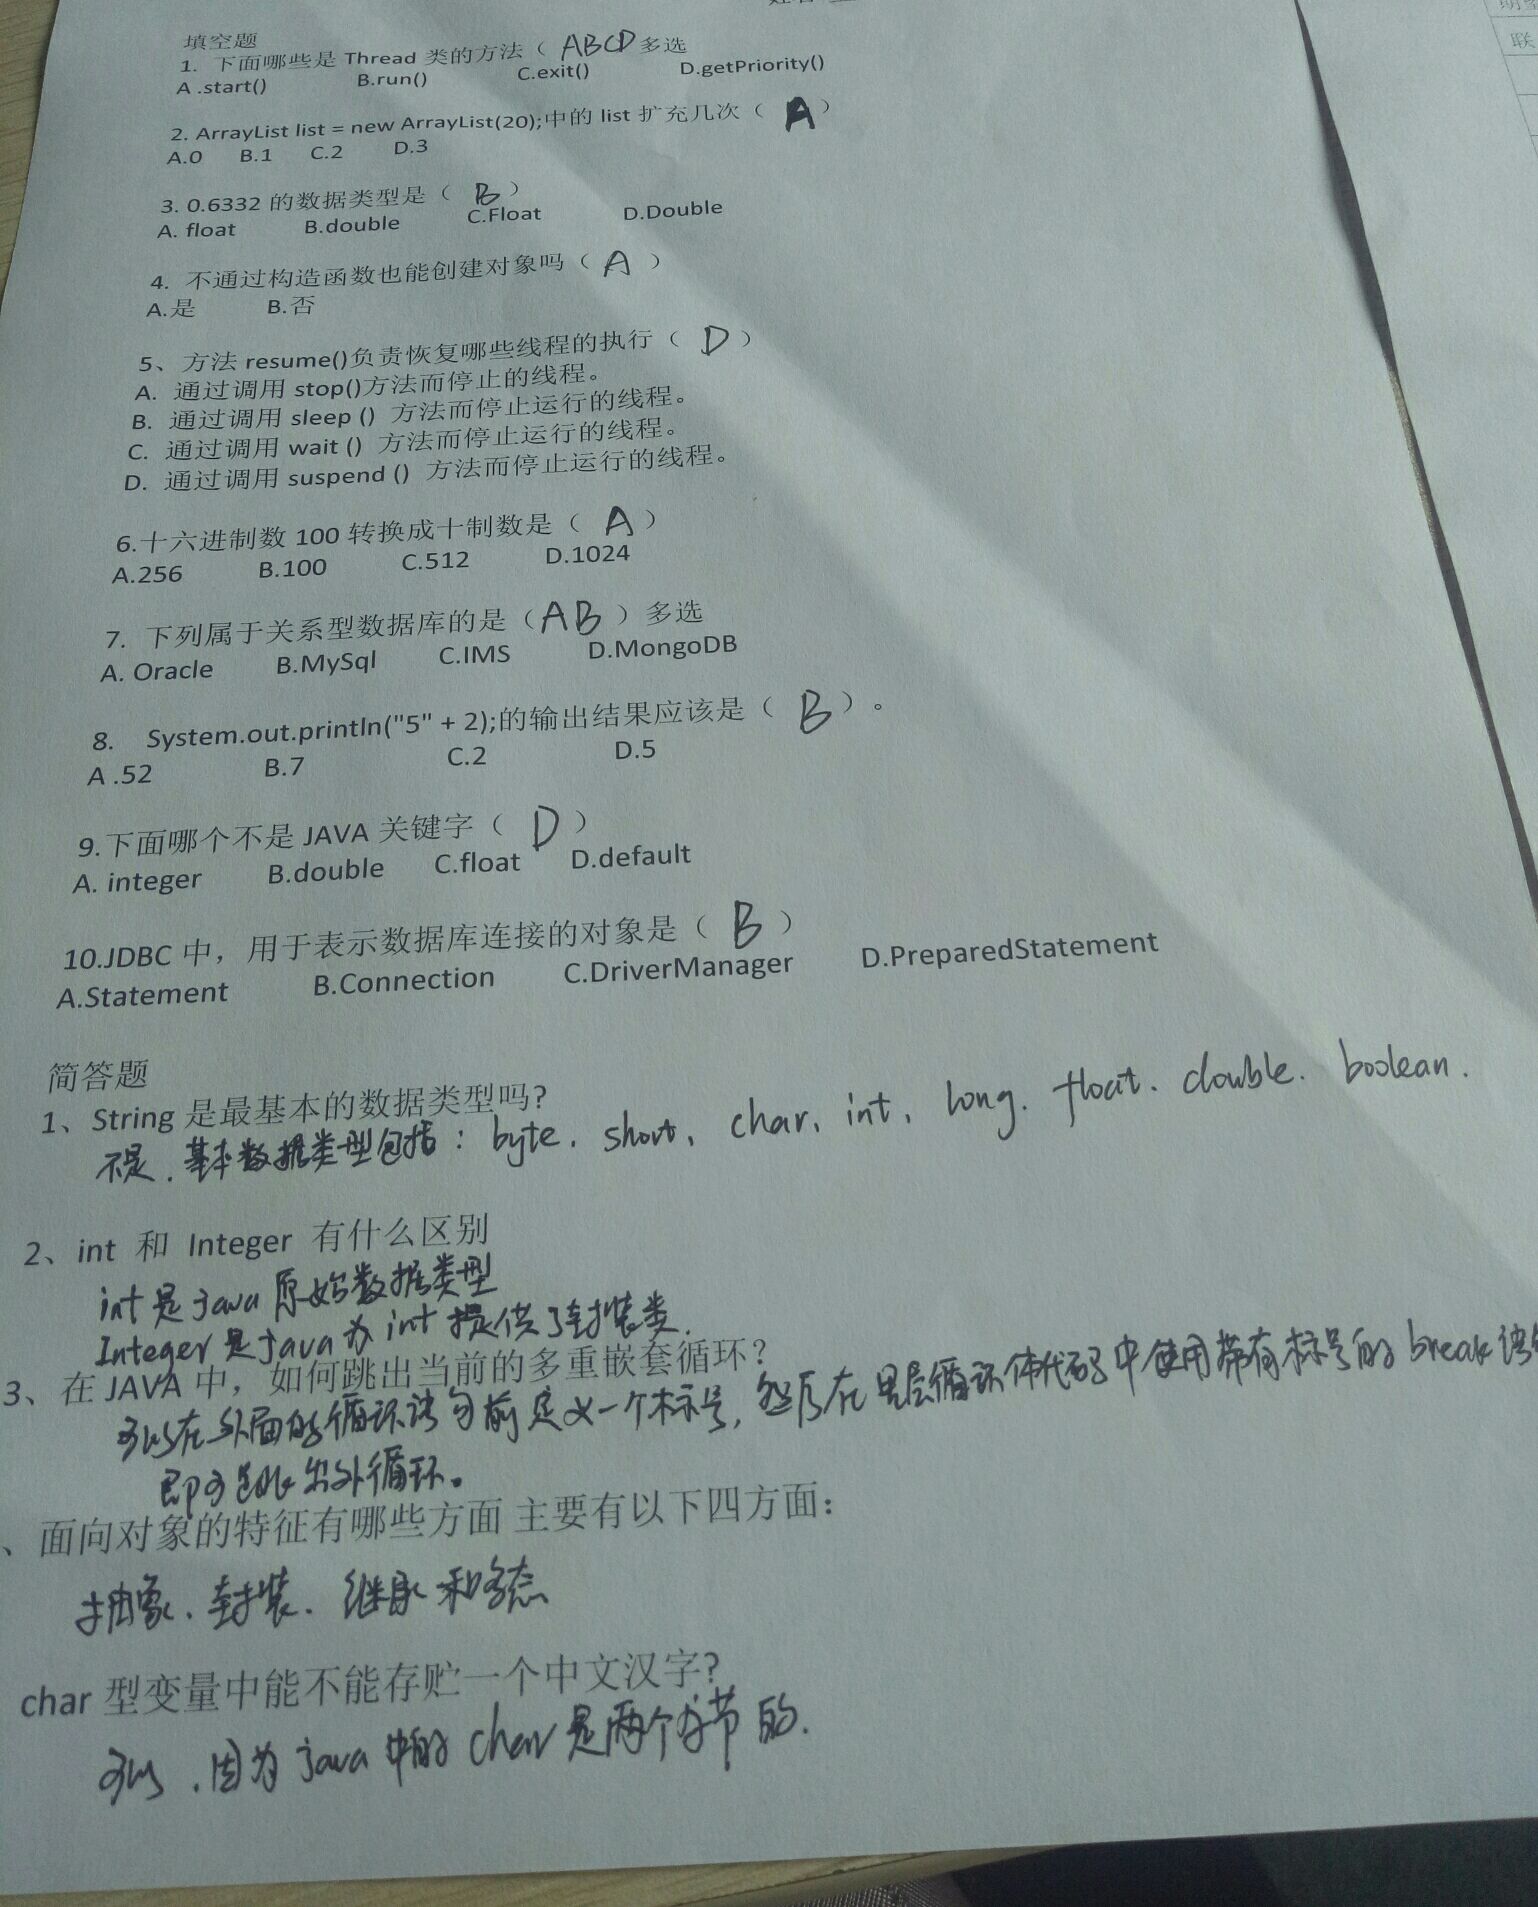 填空题
1. 下面哪些是 Thread 类的方法（ ABCD 多选
A .start() B.run() C.exit() D.getPriority()
2. ArrayList list = new ArrayList(20);中的 list 扩充几次（ A ）
A.0 B.1 C.2 D.3
3. 0.6332 的数据类型是（ B ）
A. float B.double C.Float D.Double
4. 不通过构造函数也能创建对象吗（ A ）
A.是 B.否
5、方法 resume()负责恢复哪些线程的执行（ D ）
A. 通过调用 stop()方法而停止的线程。
B. 通过调用 sleep () 方法而停止运行的线程。
C. 通过调用 wait () 方法而停止运行的线程。
D. 通过调用 suspend () 方法而停止运行的线程。
6.十六进制数 100 转换成十制数是（ A ）
A.256 B.100 C.512 D.1024
7. 下列属于关系型数据库的是（AB ）多选
A. Oracle B.MySql C.IMS D.MongoDB
8. System.out.println("5" + 2);的输出结果应该是（ B ）。
A .52 B.7 C.2 D.5
9.下面哪个不是 JAVA 关键字（ D ）
A. integer B.double C.float D.default
10.JDBC 中，用于表示数据库连接的对象是（ B ）
A.Statement B.Connection C.DriverManager D.PreparedStatement
简答题
1、String 是最基本的数据类型吗?
不是. 基本数据类型包括：byte、short、char、int、long、float、double、boolean.
2、int 和 Integer 有什么区别
int 是 java 原始数据类型
Integer 是 java 为 int 提供了封装类.
3、在 JAVA 中，如何跳出当前的多重嵌套循环?
可以在外面的循环语句前定义一个标号，然后在里层循环体代码中使用带有标号的 break 语
即可跳出外循环。
、面向对象的特征有哪些方面 主要有以下四方面：
抽象、封装、继承和多态
char 型变量中能不能存贮一个中文汉字?
可以，因为 java 中的 char 是两个字节的.
联